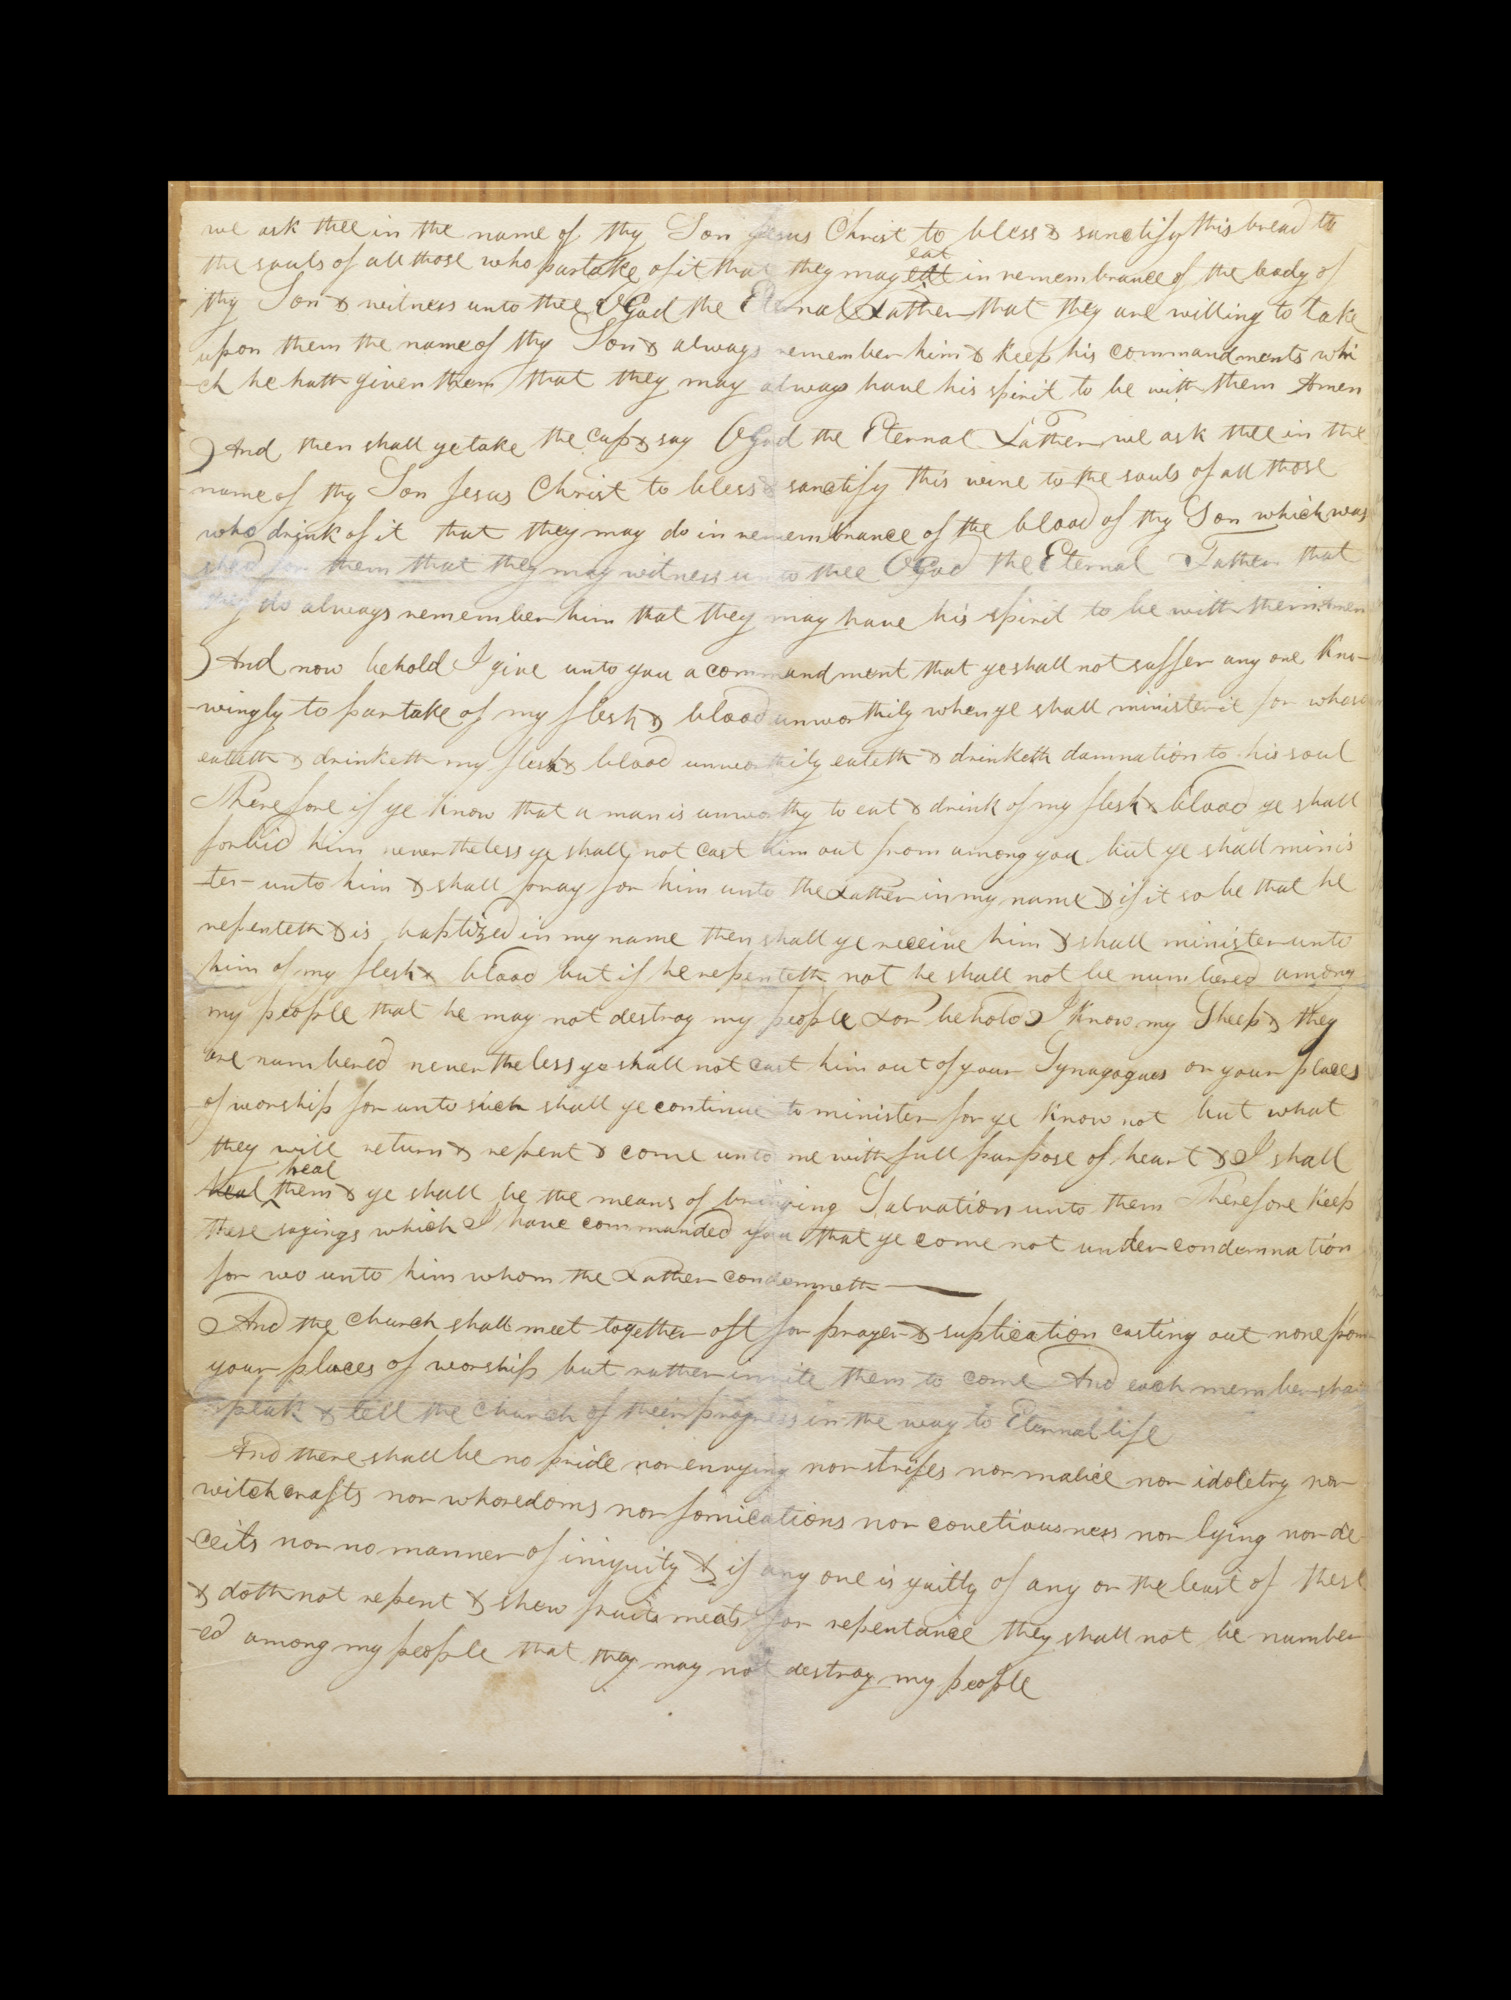 we ask thee in the name of thy Son Jesus Christ to bless & sanctify this bread to
the souls of all those who partake of it that they may eat eat in remembrance of the body of
thy Son & witness unto thee O God the Eternal Father that they are willing to take
upon them the name of thy Son & always remember him & keep his commandments whi
-ch he hath given them that they may always have his spirit to be with them Amen
And then shall ye take the cup & say O God the Eternal Father we ask thee in the
name of thy Son Jesus Christ to bless & sanctify this wine to the souls of all those
who drink of it that they may do in remembrance of the blood of thy Son which was
shed for them that they may witness unto thee O God the Eternal Father that
they do always remember him that they may have his spirit to be with them Amen
And now behold I give unto you a commandment that ye shall not suffer any one Kno-
-wingly to partake of my flesh & blood unworthily when ye shall minister it for whoso
eateth & drinketh my flesh & blood unworthily eateth & drinketh damnation to his soul
Therefore if ye Know that a man is unworthy to eat & drink of my flesh & blood ye shall
forbid him nevertheless ye shall not cast him out from among you but ye shall minis
-ter- unto him & shall pray for him unto the Father in my name & if it so be that he
repenteth & is baptized in my name then shall ye receive him & shall minister unto
him of my flesh & blood but if he repenteth not he shall not be numbered among
my people that he may not destroy my people For behold I Know my Sheep & they
are numbered nevertheless ye shall not cast him out of your Synagogues or your places
of worship for unto such shall ye continue to minister for ye Know not but what
they will return & repent & come unto me with full purpose of heart & I shall
heal heal them & ye shall be the means of bringing Salvation unto them Therefore Keep
these sayings which I have commanded you that ye come not under condemnation
for wo unto him whom the Father condemneth —
And the church shall meet together oft for prayer & suplication casting out none from
your places of worship but rather invite them to come And each member shall
speak & tell the church of their progress in the way to Eternal life
And there shall be no pride nor envying nor strifes nor malice nor idoletry nor
witchcrafts nor whoredoms nor fornications nor covetiousness nor lying nor de
-ceits nor no manner of iniquity & if any one is guilty of any or the least of these
& doth not repent & shew fruits meats for repentance they shall not be number
-ed among my people that they may not destroy my people